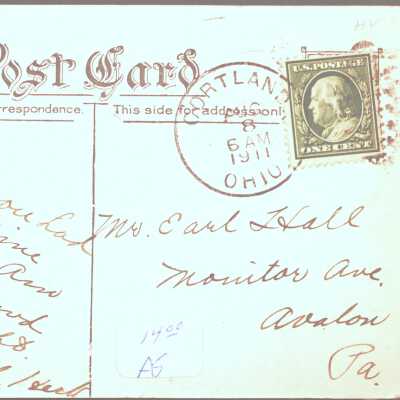 HV
Post Card
rrespondence.
This side for address only
CORTLAND
AUG
8
6 AM
1911
OHIO
U.S. POSTAGE
ONE CENT
you had
Mr. Earl Hall
Monitor Ave.
Avalon
Pa.
14.00
AG